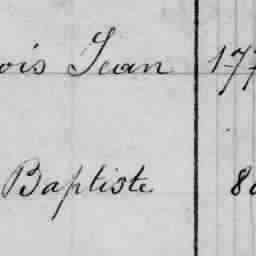 ois Jean 177
Baptiste 80